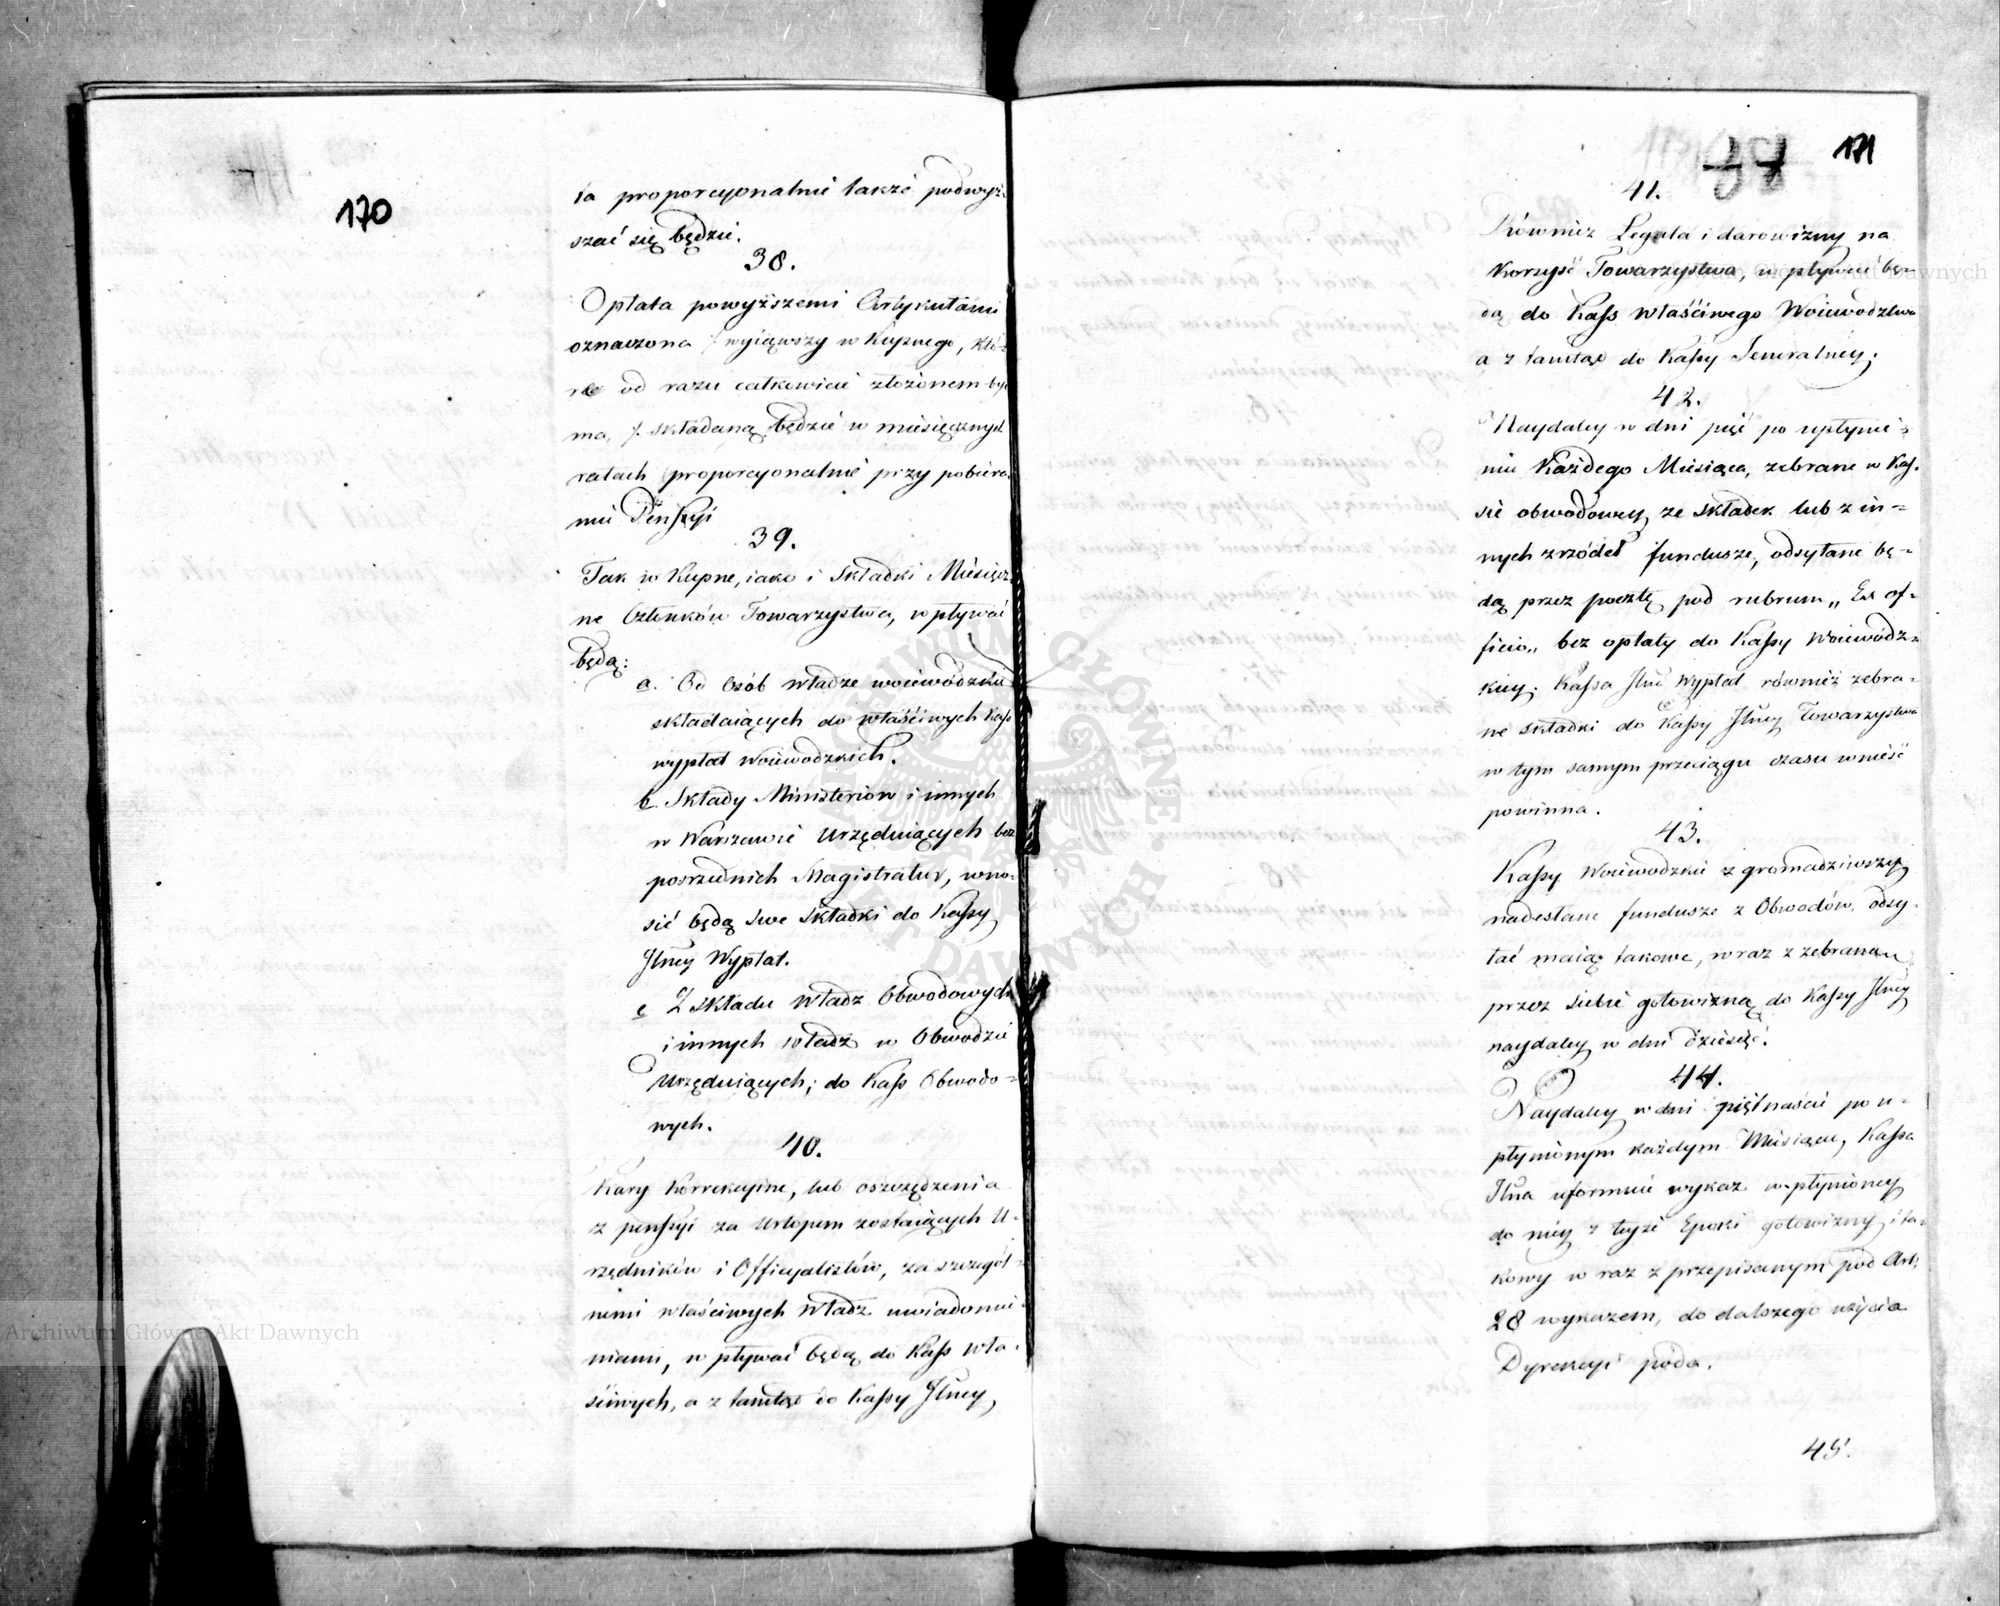 170
ta proporcyonalnie także podwyż-
szać się będzie.
38.
Opłata powyższemi Artykułami
oznaczona /: wyiąwszy w Kupnego, któ-
re od razu całkowicie złożonem być
ma, :/ składaną będzie w miesięcznych
ratach proporcyonalnie przy pobiera-
niu Pensyi
39.
Tak w Kupne, iako i Składki Miesięcz-
ne Członków Towarzystwa, wpływać
będą:
a. Od Osób władze woiewódzkie
składaiących do właściwych Kass
wypłat Woiewodzkich.
b. Składy Ministeriów i innych
w Warszawie Urzęduiących bez
pośrzednich Magistratur, wno-
sić będą swe Składki do Kassy
Głney Wypłat.
c Z składu Władz Obwodowych
i innych władz w Obwodzie
Urzęduiących; do Kass Obwodo-
wych.
40.
Kary Korrekcyine, lub oszczędzenia
z pensyi za Urlopem zostaiących U-
rzędników i Officyalistów, za szczegól-
nemi właściwych Władz uwiadomie-
niami, wpływać będą do Kass wła-
ściwych, a z tamtąd do Kassy Głney,
171
41.
Również Legata i darowizny na
Korzyść Towarzystwa, wpływać bę-
dą do Kass właściwego Woiewodztwa
a z tamtąd do Kassy Generalney.
42.
Naydaley w dni pięć po upłynie-
niu Każdego Miesiąca, zebrane w Kas-
sie obwodowey ze składek lub z in-
nych zrzódeł fundusze, odsyłane bę-
dą przez pocztę pod rubrum „ Ex of-
ficio„ bez opłaty do Kassy Woiewódz-
kiey. Kassa Głna Wypłat również zebra-
ne składki do Kassy Głney Towarzystwa
w tym samym przeciągu czasu wnieść
powinna.
43.
Kassy Woiewodzkie zgromadziwszy
nadesłane fundusze z Obwodów, odsy-
łać maią takowe, wraz z zebraną
przez siebie gotowizną do Kassy Głney
naydaley w dni dziesięć.
44.
Naydaley w dni piętnaście po u-
płynionym każdym Miesiącu, Kassa
Głna uformuie wykaz wpłynioney
do niey z teyże Epoki gotowizny, i ta-
kowy wraz z przepisanym pod Art:
28 wykazem, do dalszego użycia
Dyrekcyi poda.
45.
Archiwum Główne Akt Dawnych
Archiwum Główne Akt Dawnych
ARCHIWUM GŁÓWNE AKT DAWNYCH